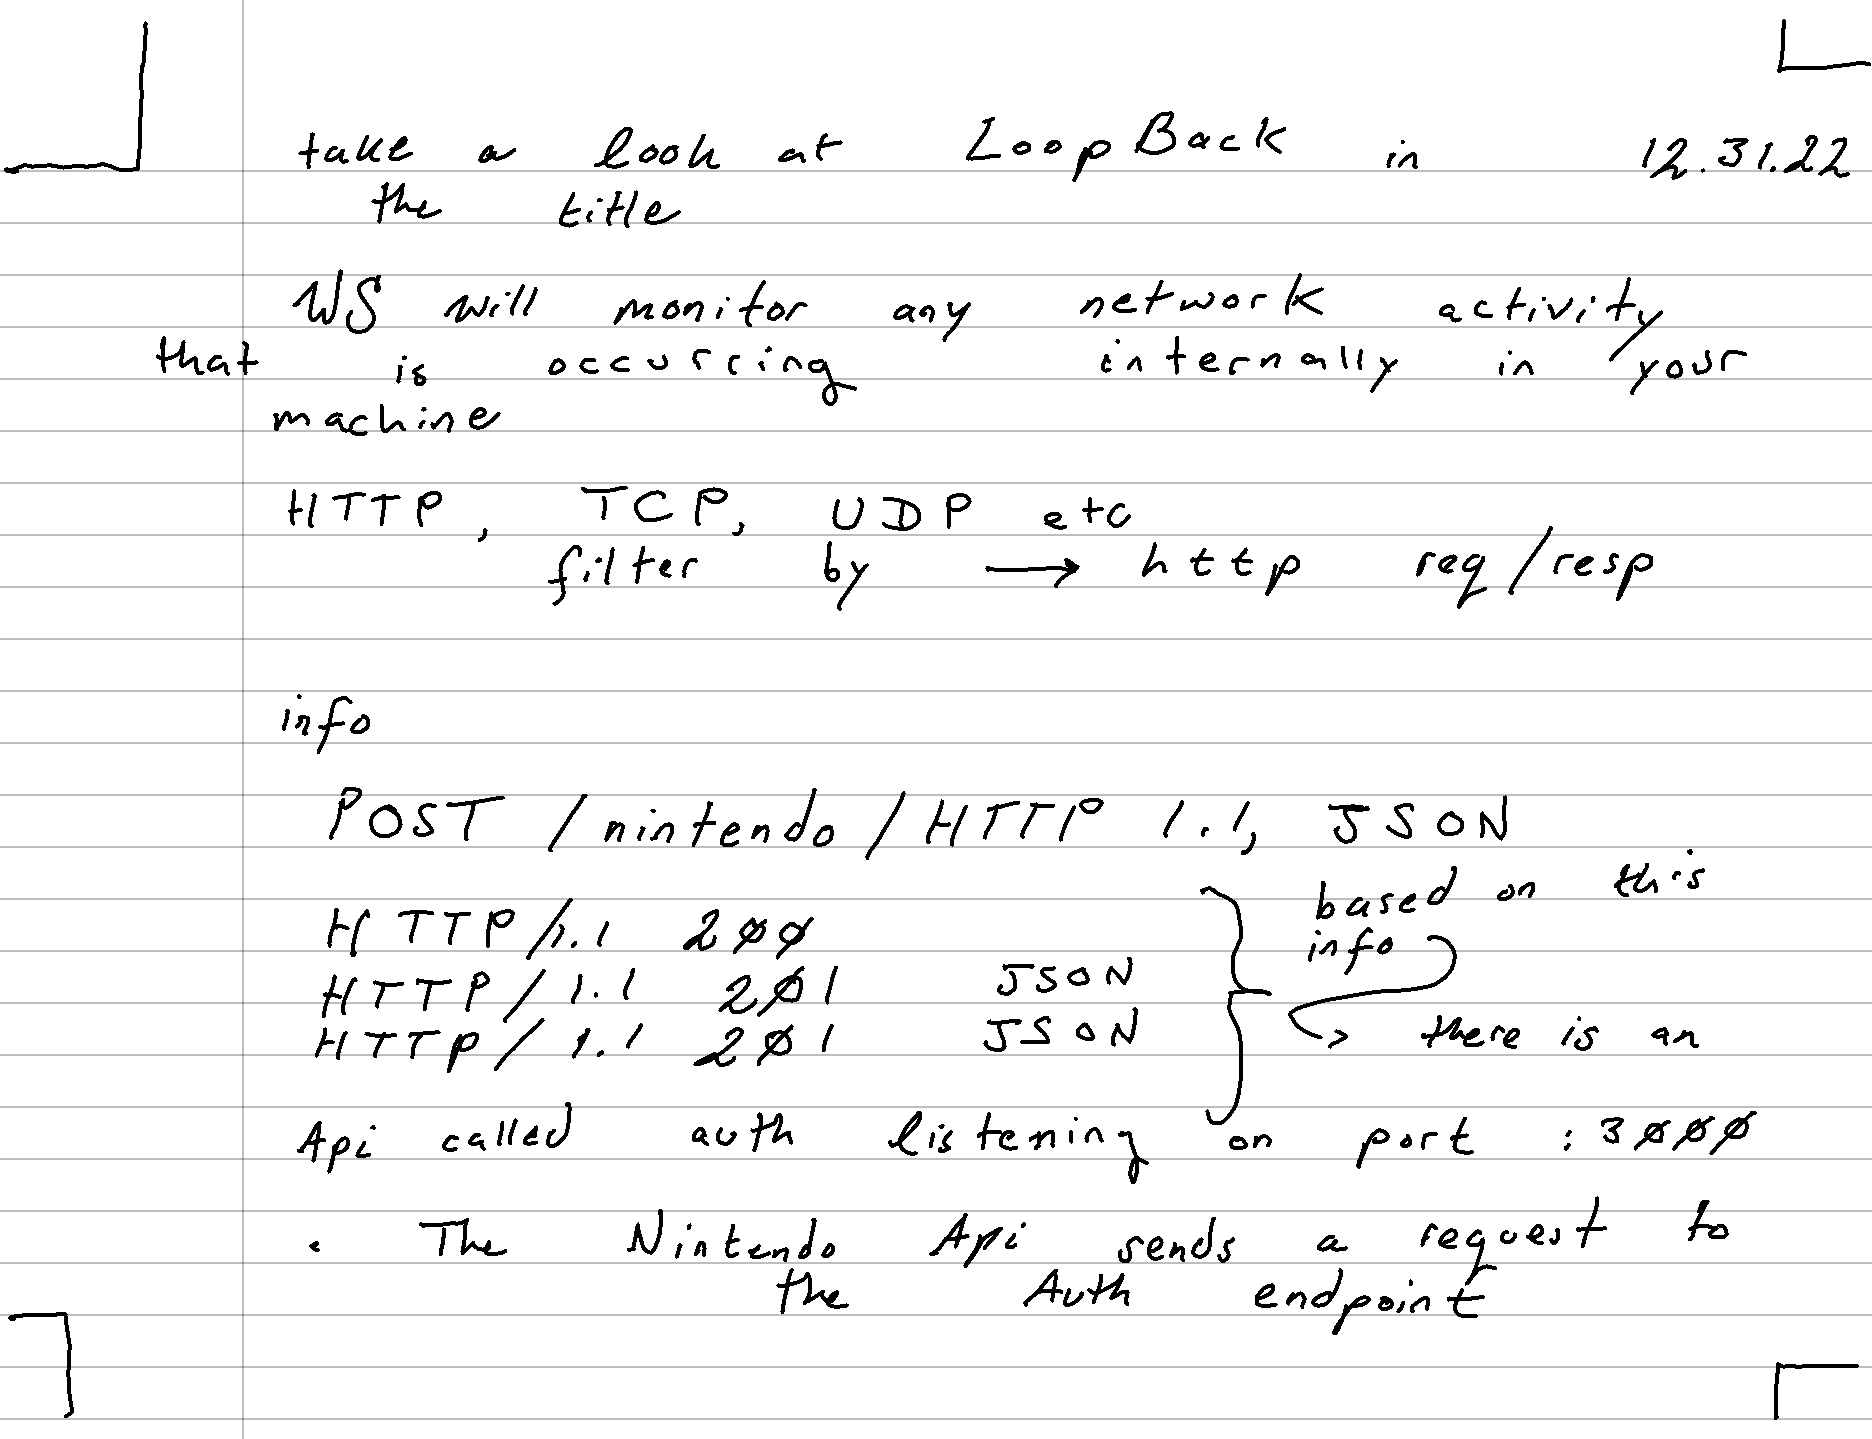 take a look at LoopBack in 12.31.22
the title
WS will monitor any network activity
that is occurring internally in your
machine
HTTP, TCP, UDP etc
filter by → http req/resp
info
POST /nintendo/HTTP 1.1, JSON
based on this
HTTP/1.1 200
info
HTTP/1.1 201 JSON
HTTP/1.1 201 JSON
there is an
Api called auth listening on port :3000
• The Nintendo Api sends a request to
the Auth endpoint